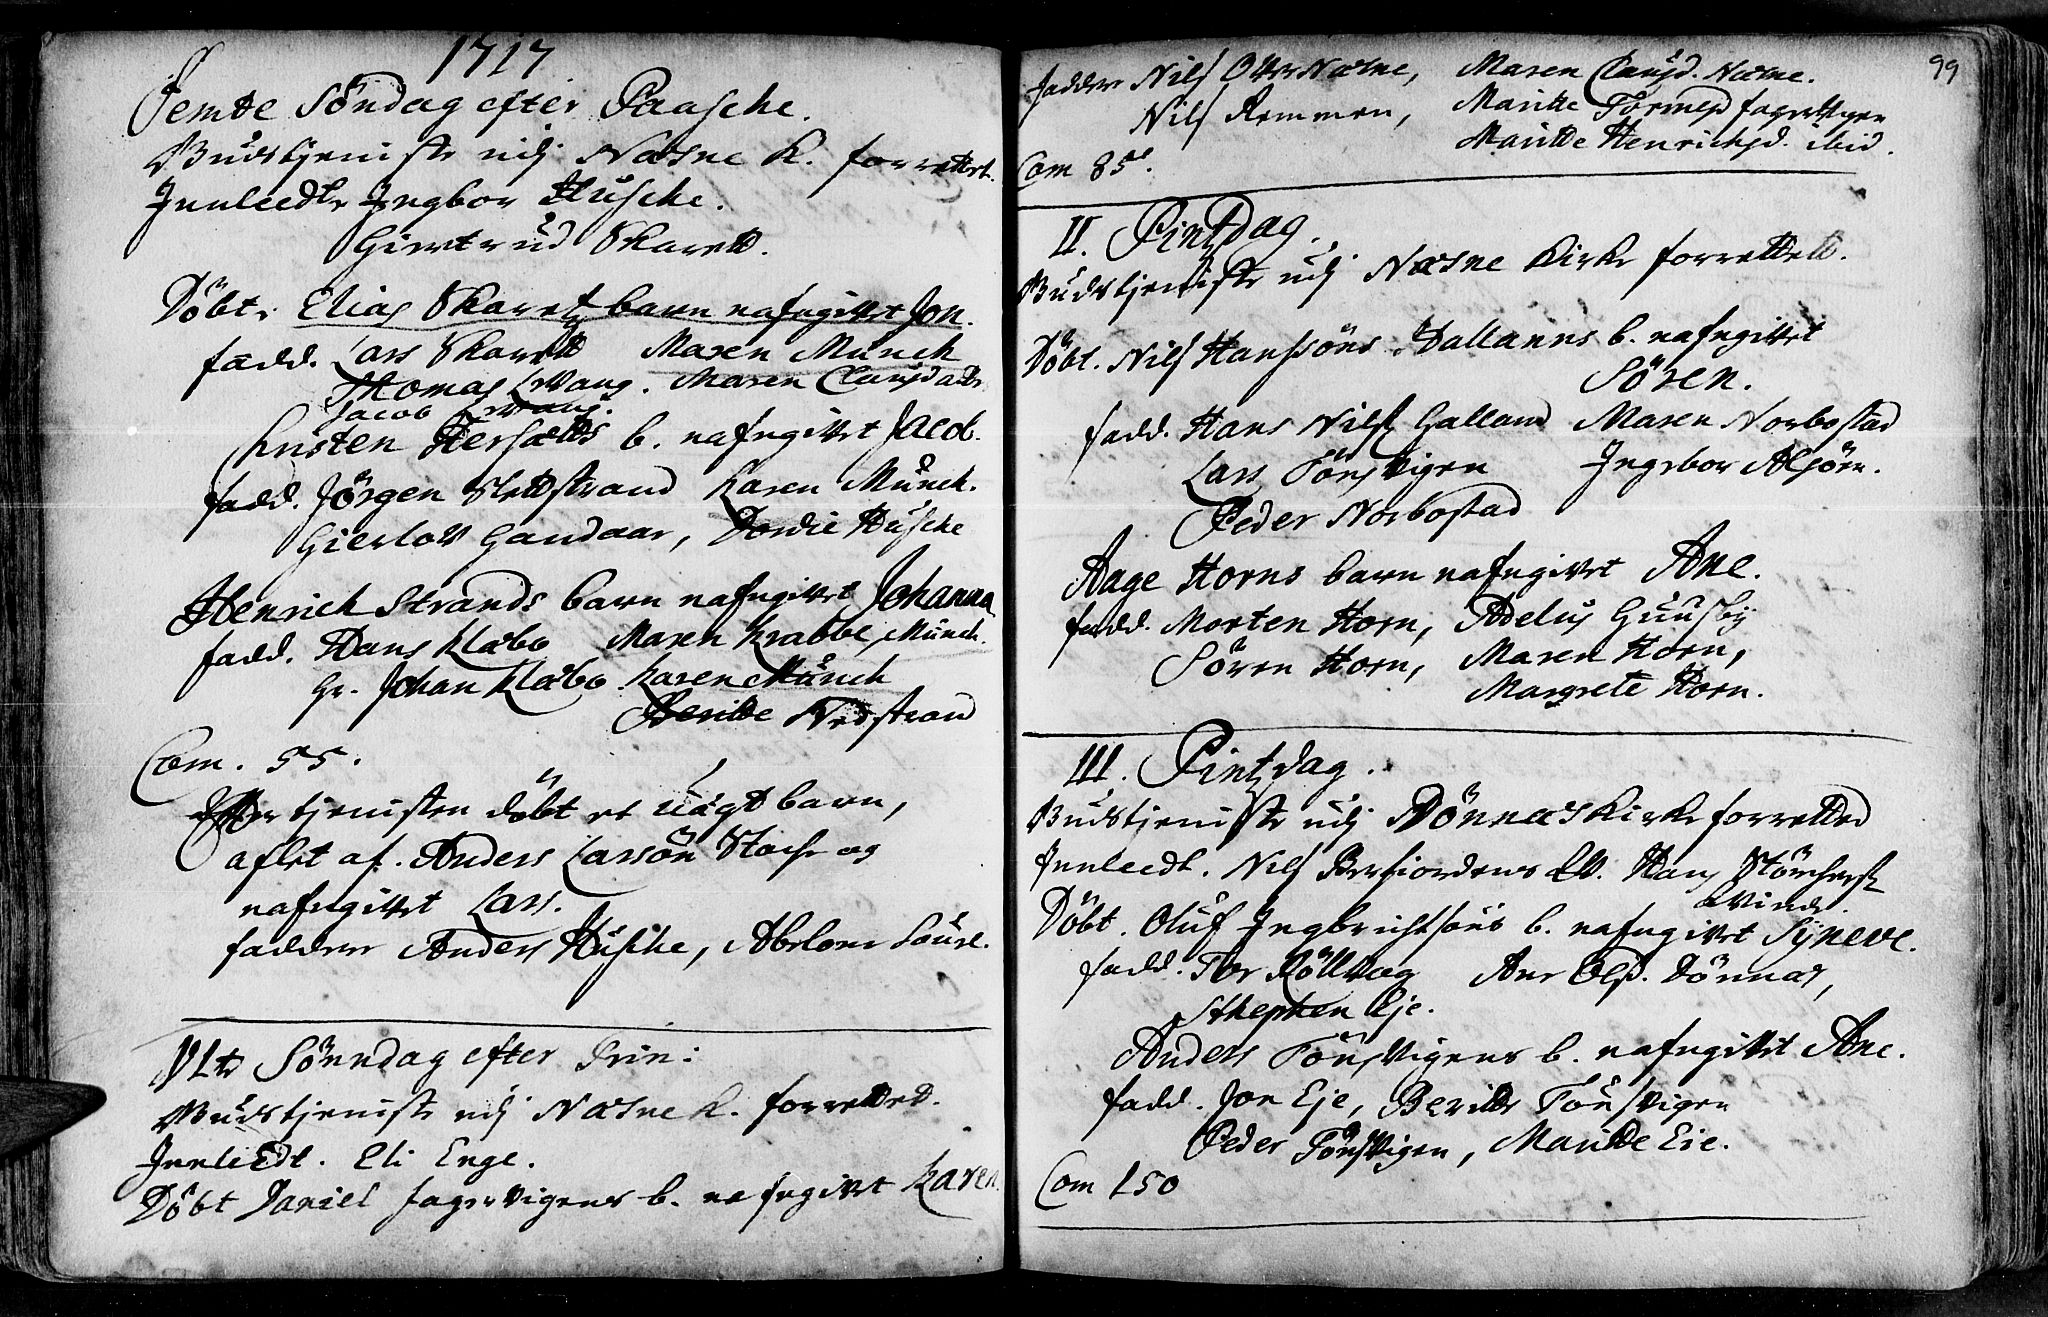 1717
Femte Söndag efter Paasche.
Gudstieniste udj Næsne K. forrettet.
Innleedt Ingbor Husche.
Giertrud Skarett.
Döbt. Elias Skaretz barn nafngivet Jon.
fadd. Lars Skarett Maren Munch
Thomas Levang. Maren Clausdatt
Jacob Levang.
Christen Hersætts b. nafngivet Jacob.
fadd. Jörgen Slettstrand Karen Münch.
Gierlov Handaar, Dordie Husche
Henrich Strands barn nafngivet Johanna
fadd. Hans Klæbo Maren Krabbe, Münch.
Hr. Johan Klæbo Karen Münch
Beritte Nedstrand
Com. 55.
Efter tienisten döbt et uægt barn,
aflet af. Anders Larsön og
nafngivet Lars.
faddere Anders Husche, Abelone
VIte Sönndag efter Trin:
Gudstieniste udj Næsne K. forrettet.
Innleedt. Eli Enge.
Döbt Daniel Fagervigens b. nafngivet Karen
99
faddere Nils Næsne, Maren Clausd. Næsne.
Nils Remmen, Maritte Fagervigen
Maritte Henrichsd. ibid.
Com 85.
II. Pintzdag.
Gudstieniste udj Næsne Kirke forrettett.
Döbt. Nils Hanssöns Dallanns b. nafngivet
Sören.
fadd. Hans Nilss Galland Maren Norbostad
Lars Tönsvigen Ingebor Alsörn.
Peder Norbostad
Aage Horns barn nafngivet Ane.
fadd. Morten Horn, Adelus Guusby
Sören Horn, Maren Horn,
Margrete Horn.
III. Pintzdag.
Gudstieniste udj Dönnæs Kirke forretted
Innleedt. Nils Berfiordens Hans
Qvinde.
Döbt. Oluf Ingbrichtsöns b. nafngivet Syneve.
fadd. Tor Röllvag Ane Olsd. Dönnæs,
Sthephen Eje.
Anders Tönsvigens b. nafngivet Ane.
fadd. Jon Eje, Beritte Tönsvigen
Peder Tönsvigen, Maritte Eie.
Com 150